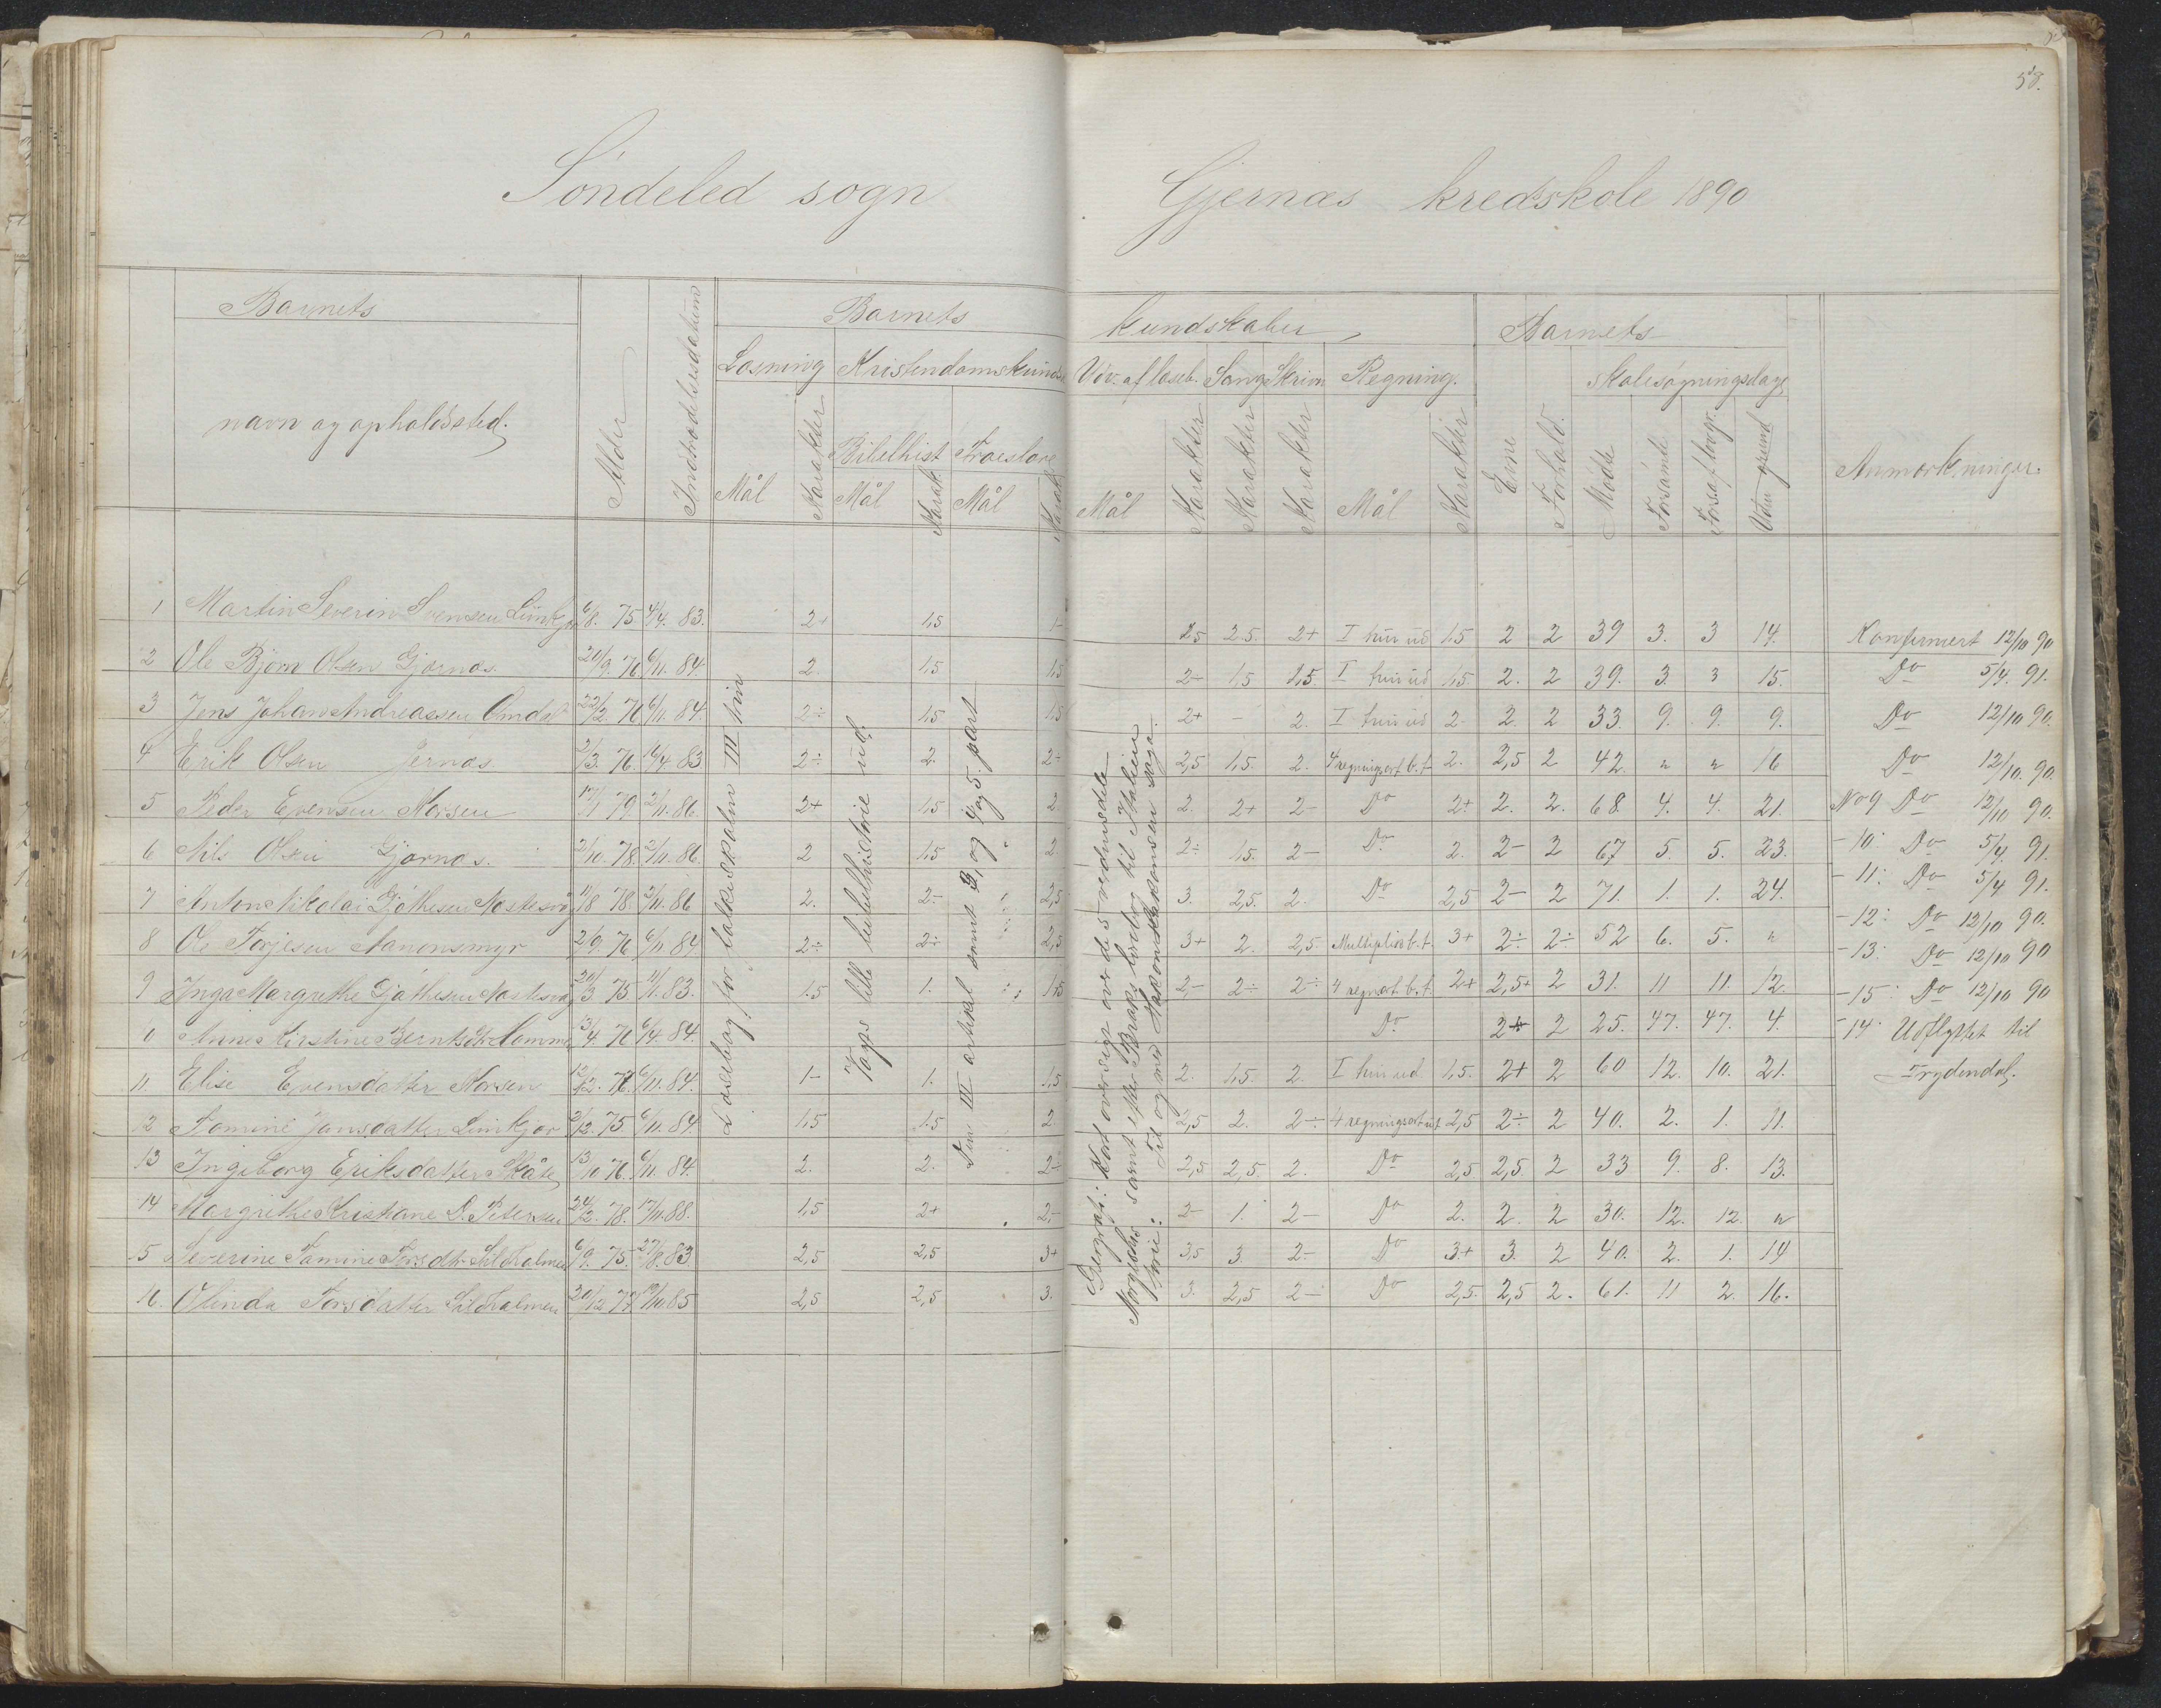 58.
Söndeled sogn Gjernæs kredsskole 1890
Barnets Barnets kundskaber, Barnets
navn og opholdssted. Alder Indtrædelsesdatum Læsning Kristendomskundsk Udv. af læseb. Sang Skrivn Regning. Evne Forhold. skolesøgningsdage Anmærkninger.
Bibelhist Troeslære Mödte Forsömte Fors. af lovgr. Uden grund
Mål Karakter Mål Karak. Mål Karak Mål Karakter Karakter Karakter Mål Karakter
Læsebog for folkeskolen III trin
Vogts lille bibelhistorie ud.
Den III artikel samt 4 og 5. part
Geografi: Kort oversigt over de 5 verdensdele
1 Martin Severin Svensen Limkjær 6/8. 75 4/4. 83. 2+ 1,5 1- 2,5 2.5. 2+ I trin ud 1,5 2 2 39 3. 3 14. Konfirmert 12/10 90
2 Ole Bjørn Olsen Gjernæs. 20/9. 76 6/11. 84. 2. 1,5 1,5 2- 1,5 1,5. I trin ud 1,5. 2. 2 39. 3. 3 15. Do 5/4. 91.
3 Jens Johan Andreassen Omdal 22/2. 76 6/11. 84. 2÷ 1,5 1,5 2+ - 2. I trin ud 2- 2. 2 33. 9. 9. 9. Do 12/10 90.
4 Erik Olsen Jernæs. 2/3. 76. 16/4. 83 2÷ 2. 2- 2,5 1,5. 2. 4 regningsart b.t. 2. 2,5 2 42. " " 16 Do 12/10. 90.
5 Peder Evensen Norsen 17/1 79. 2/11. 86. 2+ 1,5 2. 2. 2+ 2- Do 2+ 2. 2. 68. 4. 4. 21. No 9 Do 12/10 90.
6 Nils Olsen Gjærnæs. 2/10. 78. 2/11. 86. 2 1,5 2. 2÷ 1,5. 2- Do 2. 2- 2 67 5. 5. 23. -10: Do 5/4 91.
7 Anton Nikolai 11/8 78. 2/11. 86 2. 2- 2,5 3. 2,5. 2. Do 2,5 2- 2 71. 1. 1. 24. -11: Do 5/4 91.
8 Ole Terjesen 2/9. 76 6/11. 84. 2÷ 2÷ 2,5 3+ 2. 2,5. Multiplics b.t. 3+ 2÷ 2÷ 52 6. 5. " -12: Do 12/10 90.
9 Inga Margrethe 20/3 75. 11/1. 83. 1.5 1. 1,5 2,- 2÷ 2÷ 4 regn.art. b.t. 2+ 2,5+ 2 31. 11 11. 12. -13: Do 12/10 90
0 Anne Kirstine Berntsdtr 13/4. 76 6/4. 84. Do 2+ 2 25. 47. 47. 4. -15: Do 12/10 90
11 Elise Evensdatter Norsen 12/12. 76. 6/11. 84. 1- 1. 1,5 2. 1,5. 2. I trin ud 1,5. 2+ 2 60 12. 10. 21. -14: Udflyttet til
12 Tomine Jensdatter Limkjær 2/12. 75. 6/11. 84 1,5 1.5 2 2,5 2. 2÷ 4 regningsart ud 2,5 2÷ 2 40. 2. 1. 11. Frydendal.
13 Ingeborg Eriksdatter 13/10 76. 6/11. 84. 2. 2. 2÷ 2,5 2,5. 2. Do 2,5 2,5. 2 33 9. 8. 13.
14 Margrethe Kristiane D. Petersen 24/2. 78. 17/11. 88. 1,5 2+ 2,- 2- 1. 2- Do 2. 2. 2 30. 12. 12. "
5 Severine Tomine 6/9. 75. 27/8. 83. 2,5 2,5 3+ 3,5 3. 2.- Do 3+ 3. 2 40. 2. 1. 14
16. Olinda Torsdatter 20/12 77 19/10. 85 2,5 2,5 3. 3. 2,5 2- Do 2,5. 2,5 2. 61. 11 2. 16.